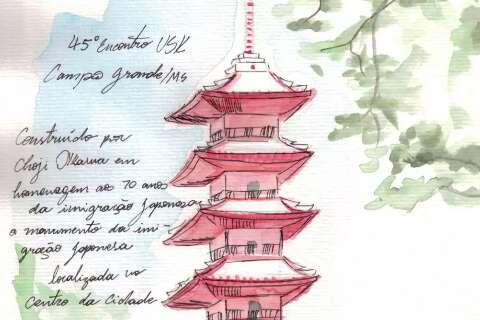 45º Encontro USK
Campo Grande/MS
Construído por
Choji Okawa em
homenagem ao 70 anos
da imigração Japonesa
o monumento da imi-
gração Japonesa
localizada no
Centro da Cidade